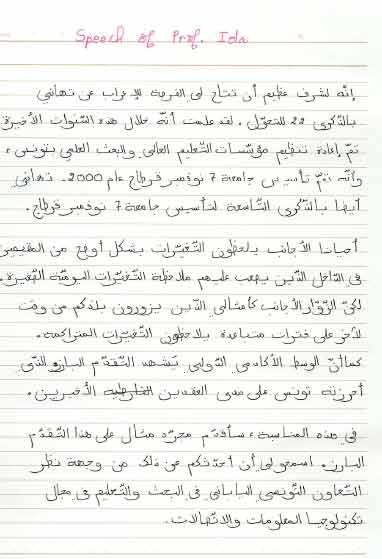 Speech of Prof. Ida
إنّه لشرف عظيم أن تتاح لي الفرصة للإعراب عن تهانيّ
بالذكرى 22 للتحوّل. لقد علمت أنّه خلال هذه السّنوات الأخيرة
تمّ إعادة تنظيم مؤسّسات التعليم العالي والبحث العلمي بتونس،
وأنّه تمّ تأسيس جامعة 7 نوفمبر قرطاج عام 2000. تهانيّ
أيضا بالذكرى التّاسعة لتأسيس جامعة 7 نوفمبر قرطاج.
أحيانا الأجانب يلاحظون التّغيّرات بشكل أوضح من المقيمين
في الدّاخل الذّين يصعب عليهم ملاحظة التّغيّرات اليوميّة الصّغيرة.
لكنّ الزوّار الأجانب كأمثالي الذّين يزورون بلدكم من وقت
لآخر على فترات متباعدة يلاحظون التّغيّرات المتراكمة.
كما أنّ الوسط الأكاديمي الدّولي يشهد التّقدّم البارز الذّي
أحرزته تونس على مدى العقدين الأخيرين.
في هذه المناسبة، سأقدّم مجرّد مثال على هذا التّقدّم
البارز. اسمحوا لي أن أحدّثكم عن ذلك من وجهة نظر
التّعاون التّونسي الياباني في البحث والتّعليم في مجال
تكنولوجيا المعلومات والاتّصالات.